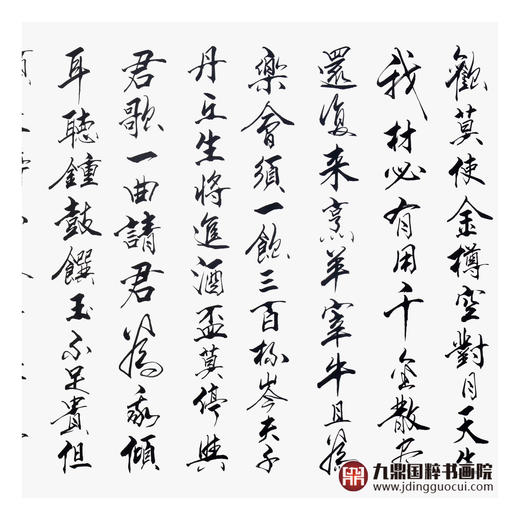 歡莫使金樽空對月天生
我材必有用千金散盡
還復来烹羊宰牛且為
樂會須一飲三百杯岑夫子
丹丘生將進酒盃莫停與
君歌一曲請君為我傾
耳聽鐘鼓饌玉不足貴但
九鼎国粹书画院
www.jdingguocui.com